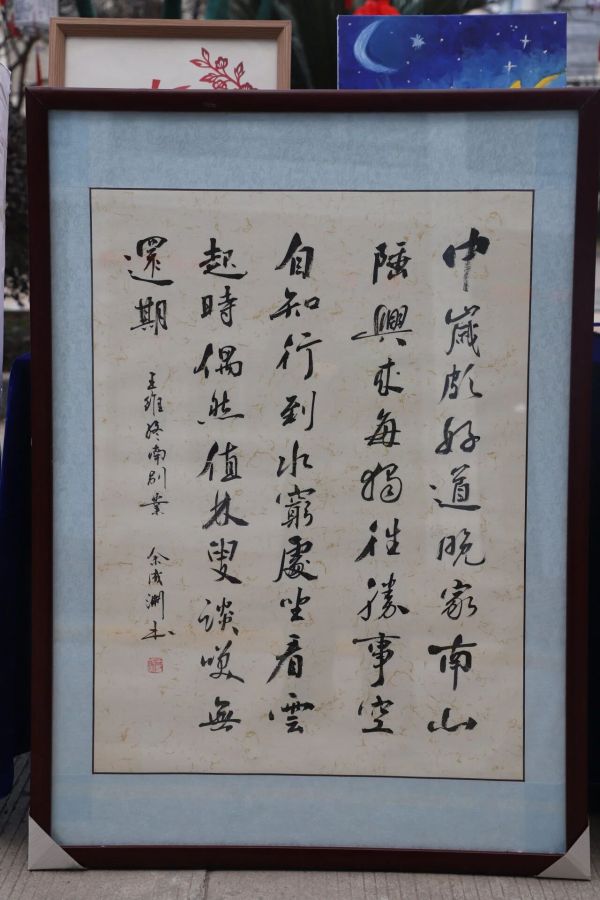 中歲頗好道晚家南山
陲興來每獨往勝事空
自知行到水窮處坐看雲
起時偶然值林叟談笑無
還期
王維終南別業 余成淵書